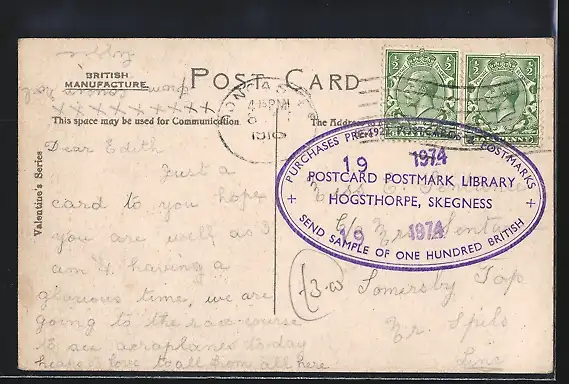 BRITISH
MANUFACTURE
POST CARD
× × × × × × × × × ×
This space may be used for Communication
The Address
DONCASTER
4.15PM
1910
½ ½ ½ ½
Valentine's Series
Dear Edith
Just a
card to you hope
you are well as I
am & having a
glorious time, we are
going to the race-course
to see aeroplanes to-day
heaps love to all from all here
PURCHASES PRE-192 POSTCARDS & POSTMARKS
19 1974
POSTCARD POSTMARK LIBRARY
+ HOGSTHORPE, SKEGNESS +
19 1974
SEND SAMPLE OF ONE HUNDRED BRITISH
Miss E.
c/o Mr
Somersby Top
Nr Spils
Linc
£3.00